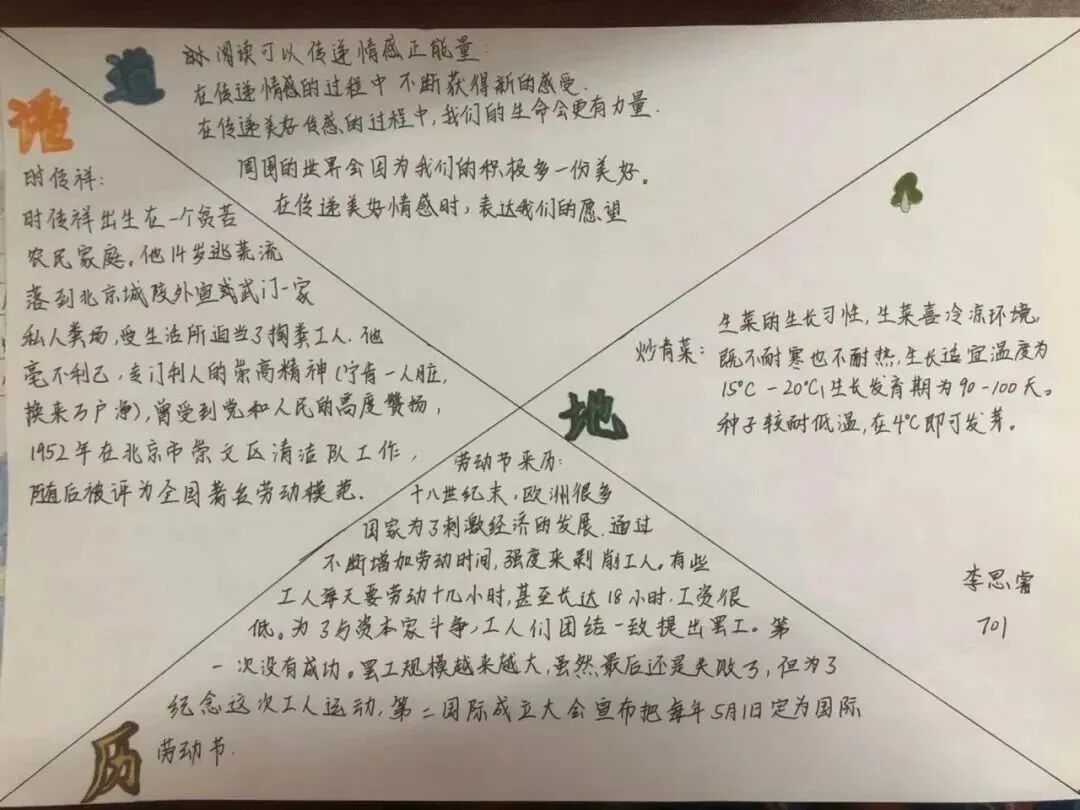 道
阅读可以传递情感正能量:
在传递情感的过程中 不断获得新的感受.
在传递美好传感的过程中,我们的生命会更有力量.
周围的世界会因为我们的积极多一份美好。
在传递美好情感时,表达我们的愿望
语
时传祥:
时传祥出生在一个贫苦
农民家庭。他14岁逃荒流
落到北京城 外宣 武门一家
私人粪场,受生活所迫当了掏粪工人.他
毫不利己,专门利人的崇高精神(宁肯一人脏,
换来万户净),曾受到党和人民的高度赞扬,
1952年在北京市崇文区清洁队工作,
随后被评为全国著名劳动模范.
炒青菜: 生菜的生长习性,生菜喜冷凉环境,
既不耐寒也不耐热,生长适宜温度为
15℃-20℃,生长发育期为90-100天。
种子较耐低温,在4℃即可发芽。
地
李思睿
701
劳动节来历:
十八世纪末,欧洲很多
国家为了刺激经济的发展,通过
不断增加劳动时间,强度来剥削工人。有些
工人每天要劳动十几小时,甚至长达18小时.工资很
低。为了与资本家斗争,工人们团结一致提出罢工。第
一次没有成功。罢工规模越来越大,虽然最后还是失败了,但为了
纪念这次工人运动,第二国际成立大会宣布把每年5月1日定为国际
劳动节.
历